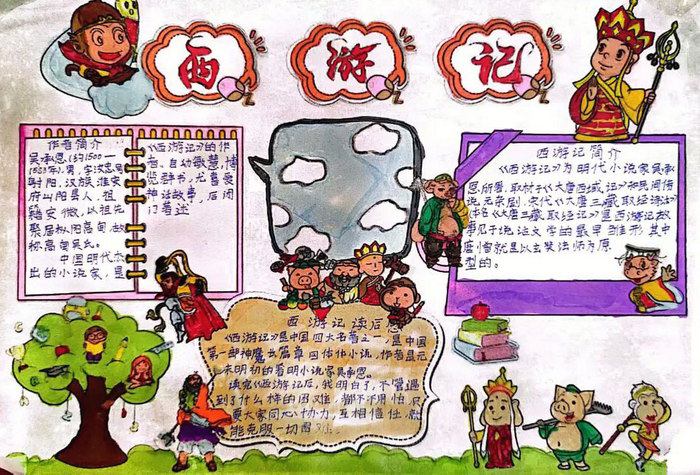 西游记
作者简介
吴承恩(约1500一
1583年),男,字汝忠,号
射阳,汉族,淮安
府山阳县人,祖
籍安微,以祖先
聚居枞阳高甸,故
称高甸吴氏。
中国明代杰
出的小说家,是
《西游记》的作
者。自幼敏慧,博
览群书,尤喜爱
神话故事,后闭
门著述
西游记简介
《西游记》为明代小说家吴承
恩所著,取材于《大唐西域记》和民间传
说、元杂剧。宋代《大唐三藏取经诗话》
本名《大唐三藏取经记》是西游记故
事见于说话文学的最早雏形,其中
唐僧就是以玄奘法师为原
型的。
西游记读后感
《西游记》是中国四大名著之一,是中国
第一部神魔长篇章回体小说,作者是元
末明初的著明小说家吴承恩。
读完《西游记》后,我明白了,不管遇
到了什么样的困难,都不用怕,只
要大家同心协力,互相信任,就
能克服一切困